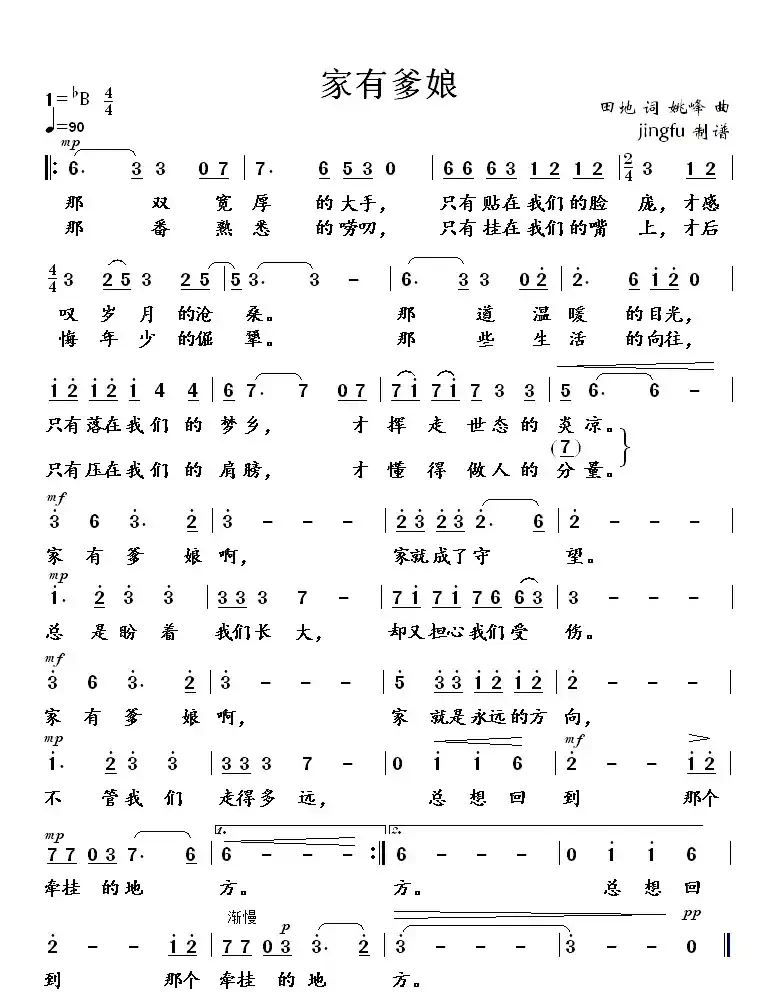 家有爹娘
1=♭B 4/4
♩=90
田地 词 姚峰 曲
jingfu 制谱
mp
6. 3 3 0 7 | 7. 6 5 3 0 | 6 6 6 3 1 2 1 2 | 2/4 3 1 2 |
那 双 宽 厚 的大手， 只有贴在我们的脸 庞，才感
那 番 熟 悉 的唠叨， 只有挂在我们的嘴 上，才后
4/4 3 2 5 3 2 5 | 5 3. 3 - | 6. 3 3 0 2 | 2. 6 1 2 0 |
叹 岁 月 的沧 桑。 那 道 温 暖 的目光，
悔 年 少 的倔 犟。 那 些 生 活 的向往，
1 2 1 2 1 4 4 | 6 7. 7 0 7 | 7 1 7 1 7 3 3 | 5 6. 6 - |
只有落在我们 的 梦乡， 才 挥 走 世态的 炎凉。
(7)
只有压在我们 的 肩膀， 才 懂 得 做人的 分量。
mf
3 6 3. 2 | 3 - - - | 2 3 2 3 2. 6 | 2 - - - |
家 有 爹 娘 啊， 家就成了守 望。
mp
1. 2 3 3 | 3 3 3 7 - | 7 1 7 1 7 6 6 3 | 3 - - - |
总 是盼 着 我们长 大， 却又担心我们受 伤。
mf
3 6 3. 2 | 3 - - - | 5 3 3 1 2 1 2 | 2 - - - |
家 有 爹 娘 啊， 家 就是永远的方 向，
mp mf
1. 2 3 3 | 3 3 3 7 - | 0 1 1 6 | 2 - - 1 2 |
不 管我 们 走得多 远， 总 想 回 到 那个
mp 1. 2.
7 7 0 3 7. 6 | 6 - - - :| 6 - - - | 0 1 1 6 |
牵挂 的地 方。 方。 总 想 回
渐慢 p pp
2 - - 1 2 | 7 7 0 3 3. 2 | 3 - - - | 3 - - 0 |
到 那个 牵挂 的 地 方。